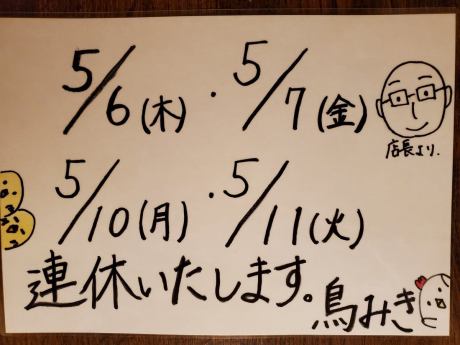 5/6(木)・5/7(金)
店長より.
5/10(月)・5/11(火)
連休いたします。
鳥みき